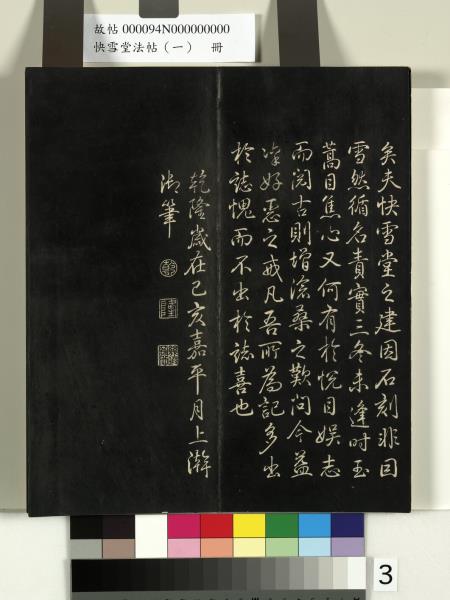 故帖 000094N000000000
快雪堂法帖（一） 冊
矣夫快雪堂之建因石刻非因
雪然循名責實三冬未逢時玉
蒿目焦心又何有於悅目娛志
而閱古則增滄桑之歎問今益
凜好惡之戒凡吾所為記多出
於誌愧而不出於誌喜也
乾隆歲在己亥嘉平月上澣
御筆
3